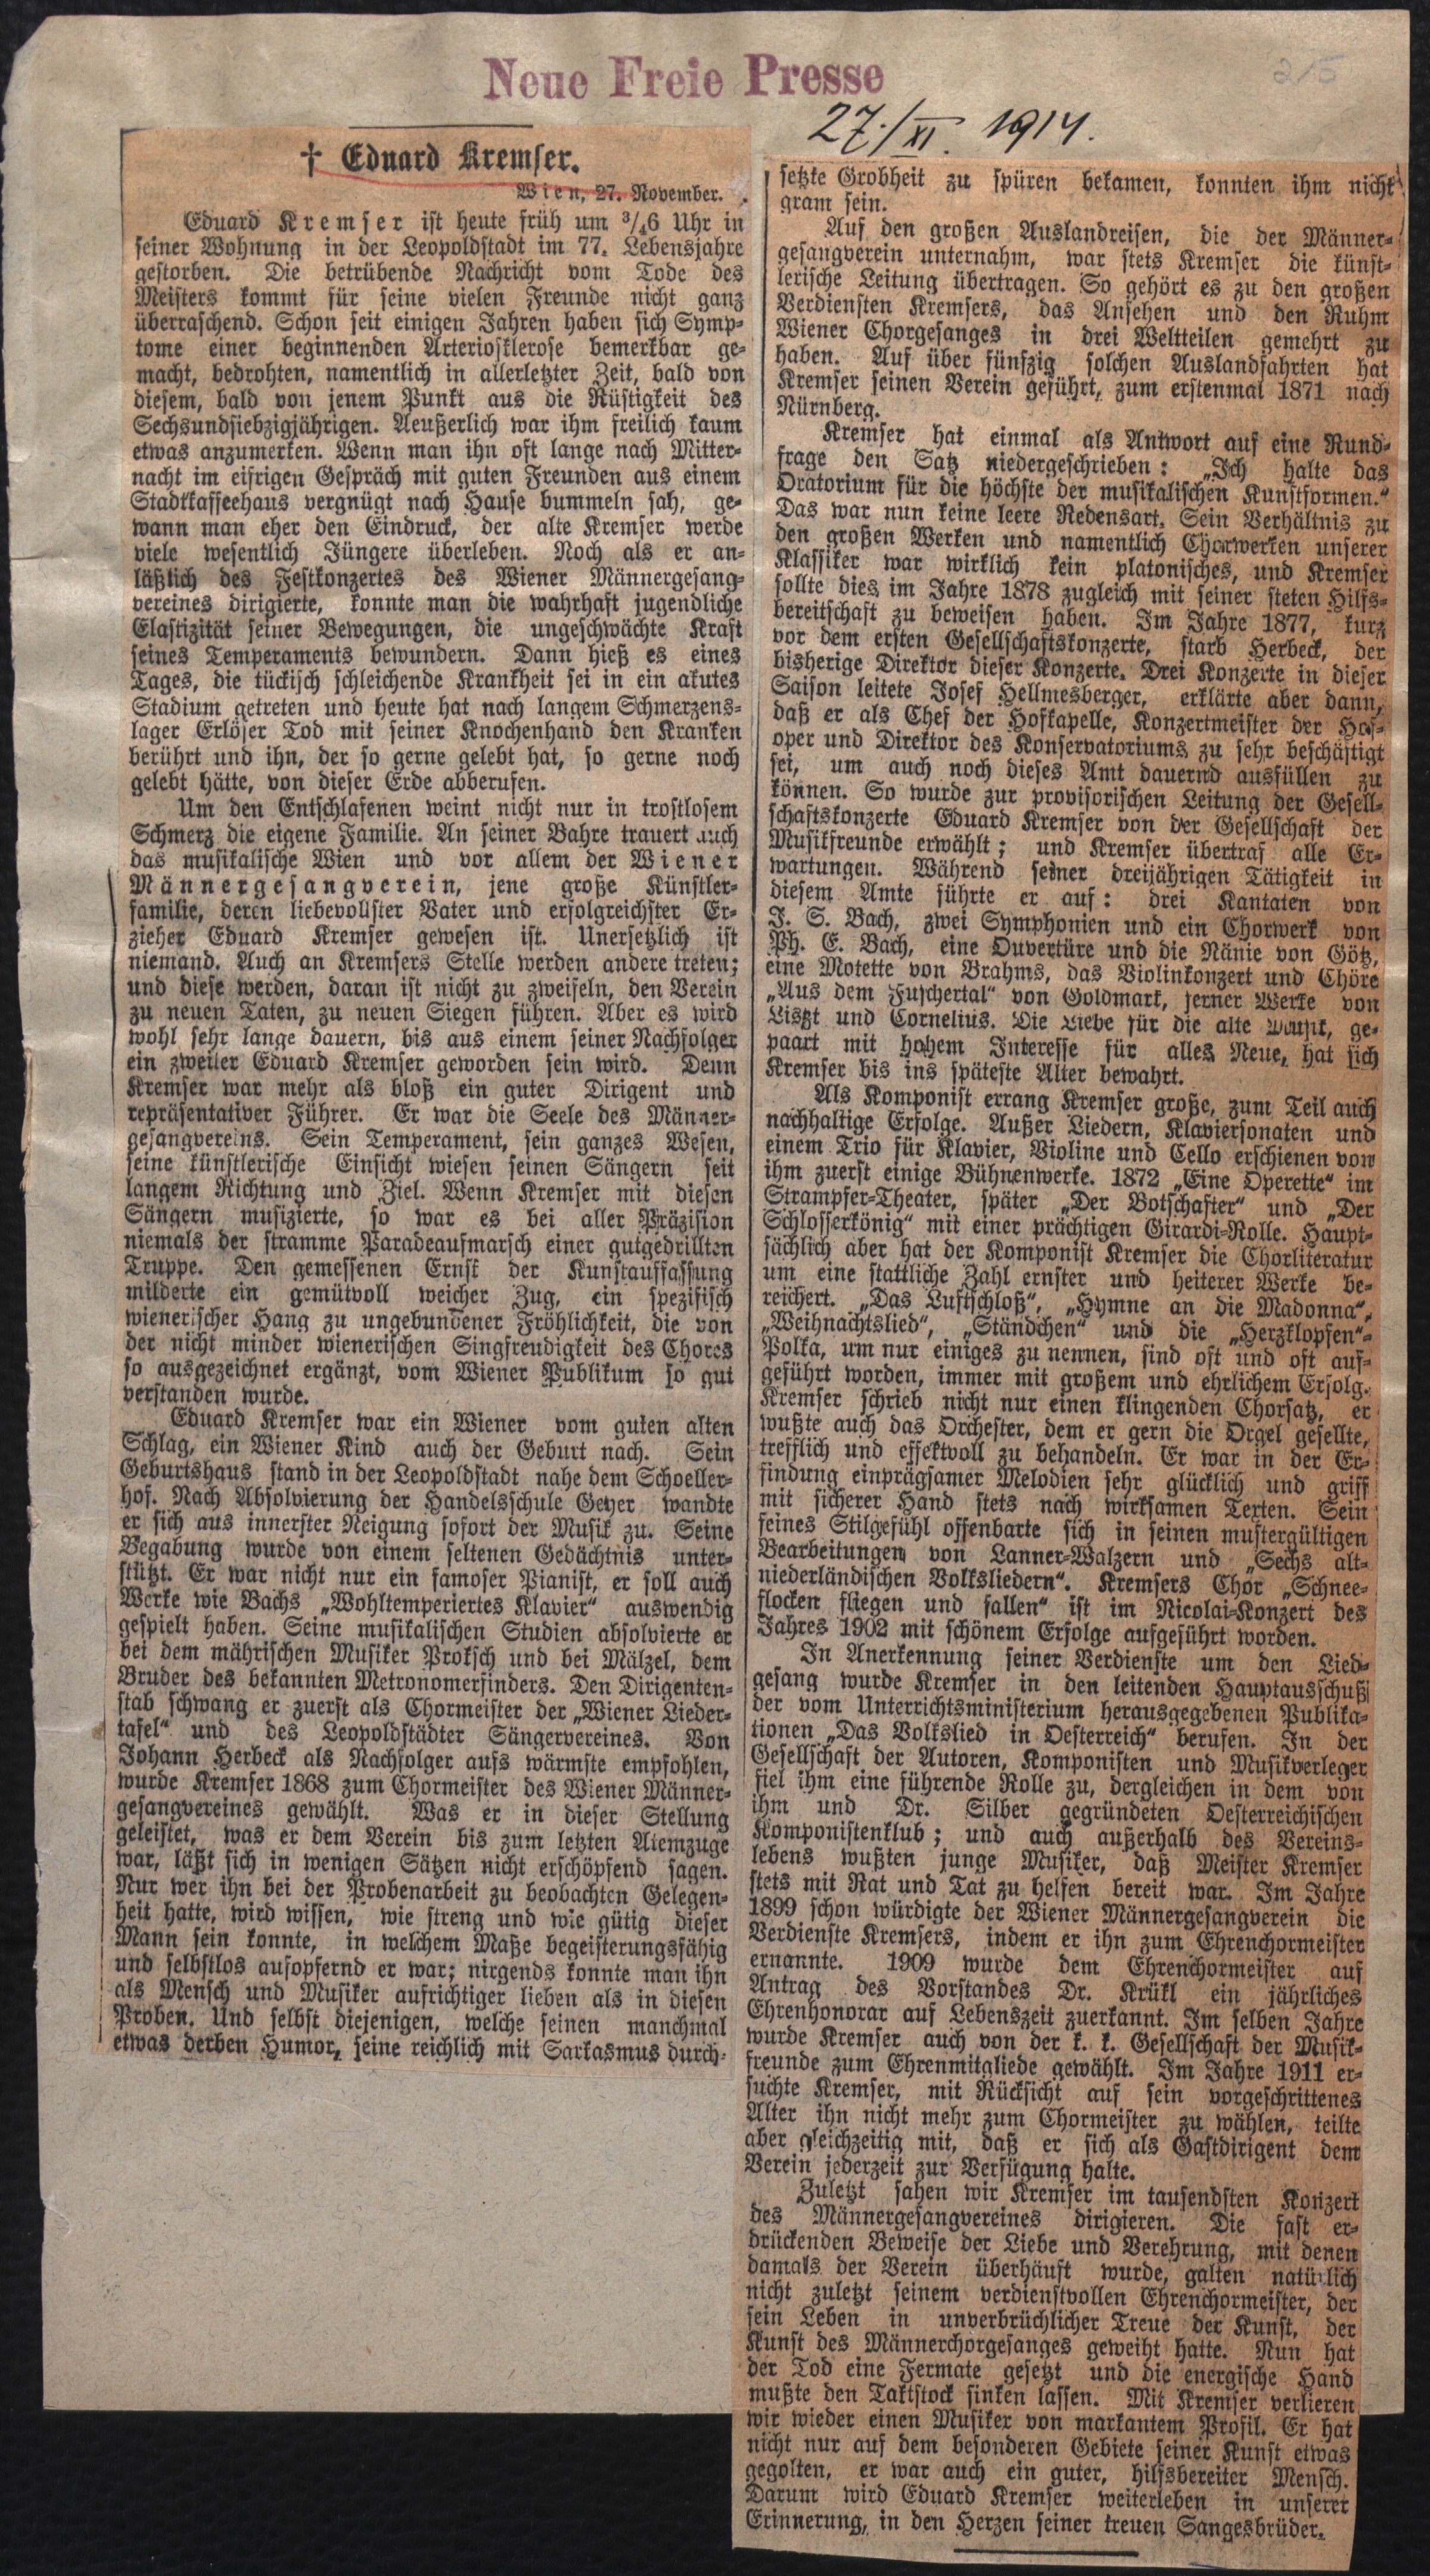 Neue Freie Presse
215
27./XI. 1914.
† Eduard Kremser.
Wien, 27. November.
Eduard Kremser ist heute früh um 3/46 Uhr in
seiner Wohnung in der Leopoldstadt im 77. Lebensjahre
gestorben. Die betrübende Nachricht vom Tode des
Meisters kommt für seine vielen Freunde nicht ganz
überraschend. Schon seit einigen Jahren haben sich Symp-
tome einer beginnenden Arteriosklerose bemerkbar ge-
macht, bedrohten, namentlich in allerletzter Zeit, bald von
diesem, bald von jenem Punkt aus die Rüstigkeit des
Sechsundsiebzigjährigen. Aeußerlich war ihm freilich kaum
etwas anzumerken. Wenn man ihn oft lange nach Mitter-
nacht im eifrigen Gespräch mit guten Freunden aus einem
Stadtkaffeehaus vergnügt nach Hause bummeln sah, ge-
wann man eher den Eindruck, der alte Kremser werde
viele wesentlich Jüngere überleben. Noch als er an-
läßlich des Festkonzertes des Wiener Männergesang-
vereines dirigierte, konnte man die wahrhaft jugendliche
Elastizität seiner Bewegungen, die ungeschwächte Kraft
seines Temperaments bewundern. Dann hieß es eines
Tages, die tückisch schleichende Krankheit sei in ein akutes
Stadium getreten und heute hat nach langem Schmerzens-
lager Erlöser Tod mit seiner Knochenhand den Kranken
berührt und ihn, der so gerne gelebt hat, so gerne noch
gelebt hätte, von dieser Erde abberufen.
Um den Entschlafenen weint nicht nur in trostlosem
Schmerz die eigene Familie. An seiner Bahre trauert auch
das musikalische Wien und vor allem der Wiener
Männergesangverein, jene große Künstler-
familie, deren liebevollster Vater und erfolgreichster Er-
zieher Eduard Kremser gewesen ist. Unersetzlich ist
niemand. Auch an Kremsers Stelle werden andere treten;
und diese werden, daran ist nicht zu zweifeln, den Verein
zu neuen Taten, zu neuen Siegen führen. Aber es wird
wohl sehr lange dauern, bis aus einem seiner Nachfolger
ein zweiter Eduard Kremser geworden sein wird. Denn
Kremser war mehr als bloß ein guter Dirigent und
repräsentativer Führer. Er war die Seele des Männer-
gesangvereins. Sein Temperament, sein ganzes Wesen,
seine künstlerische Einsicht wiesen seinen Sängern seit
langem Richtung und Ziel. Wenn Kremser mit diesen
Sängern musizierte, so war es bei aller Präzision
niemals der stramme Paradeaufmarsch einer gutgedrillten
Truppe. Den gemessenen Ernst der Kunstauffassung
milderte ein gemütvoll weicher Zug, ein spezifisch
wienerischer Hang zu ungebundener Fröhlichkeit, die von
der nicht minder wienerischen Singfreudigkeit des Chores
so ausgezeichnet ergänzt, vom Wiener Publikum so gut
verstanden wurde.
Eduard Kremser war ein Wiener vom guten alten
Schlag, ein Wiener Kind auch der Geburt nach. Sein
Geburtshaus stand in der Leopoldstadt nahe dem Schoeller-
hof. Nach Absolvierung der Handelsschule Geyer wandte
er sich aus innerster Neigung sofort der Musik zu. Seine
Begabung wurde von einem seltenen Gedächtnis unter-
stützt. Er war nicht nur ein famoser Pianist, er soll auch
Werke wie Bachs „Wohltemperiertes Klavier“ auswendig
gespielt haben. Seine musikalischen Studien absolvierte er
bei dem mährischen Musiker Proksch und bei Mälzel, dem
Bruder des bekannten Metronomerfinders. Den Dirigenten-
stab schwang er zuerst als Chormeister der „Wiener Lieder-
tafel“ und des Leopoldstädter Sängervereines. Von
Johann Herbeck als Nachfolger aufs wärmste empfohlen,
wurde Kremser 1868 zum Chormeister des Wiener Männer-
gesangvereines gewählt. Was er in dieser Stellung
geleistet, was er dem Verein bis zum letzten Atemzuge
war, läßt sich in wenigen Sätzen nicht erschöpfend sagen.
Nur wer ihn bei der Probenarbeit zu beobachten Gelegen-
heit hatte, wird wissen, wie streng und wie gütig dieser
Mann sein konnte, in welchem Maße begeisterungsfähig
und selbstlos aufopfernd er war; nirgends konnte man ihn
als Mensch und Musiker aufrichtiger lieben als in diesen
Proben. Und selbst diejenigen, welche seinen manchmal
etwas derben Humor, seine reichlich mit Sarkasmus durch-
setzte Grobheit zu spüren bekamen, konnten ihm nicht
gram sein.
Auf den großen Auslandreisen, die der Männer-
gesangverein unternahm, war stets Kremser die künst-
lerische Leitung übertragen. So gehört es zu den großen
Verdiensten Kremsers, das Ansehen und den Ruhm
Wiener Chorgesanges in drei Weltteilen gemehrt zu
haben. Auf über fünfzig solchen Auslandfahrten hat
Kremser seinen Verein geführt, zum erstenmal 1871 nach
Nürnberg.
Kremser hat einmal als Antwort auf eine Rund-
frage den Satz niedergeschrieben: „Ich halte das
Oratorium für die höchste der musikalischen Kunstformen.“
Das war nun keine leere Redensart. Sein Verhältnis zu
den großen Werken und namentlich Chorwerken unserer
Klassiker war wirklich kein platonisches, und Kremser
sollte dies im Jahre 1878 zugleich mit seiner steten Hilfs-
bereitschaft zu beweisen haben. Im Jahre 1877, kurz
vor dem ersten Gesellschaftskonzerte, starb Herbeck, der
bisherige Direktor dieser Konzerte. Drei Konzerte in dieser
Saison leitete Josef Hellmesberger, erklärte aber dann,
daß er als Chef der Hofkapelle, Konzertmeister der Hof-
oper und Direktor des Konservatoriums zu sehr beschäftigt
sei, um auch noch dieses Amt dauernd ausfüllen zu
können. So wurde zur provisorischen Leitung der Gesell-
schaftskonzerte Eduard Kremser von der Gesellschaft der
Musikfreunde erwählt; und Kremser übertraf alle Er-
wartungen. Während seiner dreijährigen Tätigkeit in
diesem Amte führte er auf: drei Kantaten von
J. S. Bach, zwei Symphonien und ein Chorwerk von
Ph. E. Bach, eine Ouvertüre und die Nänie von Götz,
eine Motette von Brahms, das Violinkonzert und Chöre
„Aus dem Fuschertal“ von Goldmark, ferner Werke von
Liszt und Cornelius. Die Liebe für die alte Musik, ge-
paart mit hohem Interesse für alles Neue, hat sich
Kremser bis ins späteste Alter bewahrt.
Als Komponist errang Kremser große, zum Teil auch
nachhaltige Erfolge. Außer Liedern, Klaviersonaten und
einem Trio für Klavier, Violine und Cello erschienen von
ihm zuerst einige Bühnenwerke. 1872 „Eine Operette“ im
Strampfer-Theater, später „Der Botschafter“ und „Der
Schlosserkönig“ mit einer prächtigen Girardi-Rolle. Haupt-
sächlich aber hat der Komponist Kremser die Chorliteratur
um eine stattliche Zahl ernster und heiterer Werke be-
reichert. „Das Luftschloß“, „Hymne an die Madonna“,
„Weihnachtslied“, „Ständchen“ und die „Herzklopfen“-
Polka, um nur einiges zu nennen, sind oft und oft auf-
geführt worden, immer mit großem und ehrlichem Erfolg.
Kremser schrieb nicht nur einen klingenden Chorsatz, er
wußte auch das Orchester, dem er gern die Orgel gesellte,
trefflich und effektvoll zu behandeln. Er war in der Er-
findung einprägsamer Melodien sehr glücklich und griff
mit sicherer Hand stets nach wirksamen Texten. Sein
feines Stilgefühl offenbarte sich in seinen mustergültigen
Bearbeitungen von Lanner-Walzern und „Sechs alt-
niederländischen Volksliedern“. Kremsers Chor „Schnee-
flocken fliegen und fallen“ ist im Nicolai-Konzert des
Jahres 1902 mit schönem Erfolge aufgeführt worden.
In Anerkennung seiner Verdienste um den Lied-
gesang wurde Kremser in den leitenden Hauptausschuß
der vom Unterrichtsministerium herausgegebenen Publika-
tionen „Das Volkslied in Oesterreich“ berufen. In der
Gesellschaft der Autoren, Komponisten und Musikverleger
fiel ihm eine führende Rolle zu, dergleichen in dem von
ihm und Dr. Silber gegründeten Oesterreichischen
Komponistenklub; und auch außerhalb des Vereins-
lebens wußten junge Musiker, daß Meister Kremser
stets mit Rat und Tat zu helfen bereit war. Im Jahre
1899 schon würdigte der Wiener Männergesangverein die
Verdienste Kremsers, indem er ihn zum Ehrenchormeister
ernannte. 1909 wurde dem Ehrenchormeister auf
Antrag des Vorstandes Dr. Krükl ein jährliches
Ehrenhonorar auf Lebenszeit zuerkannt. Im selben Jahre
wurde Kremser auch von der k. k. Gesellschaft der Musik-
freunde zum Ehrenmitgliede gewählt. Im Jahre 1911 er-
suchte Kremser, mit Rücksicht auf sein vorgeschrittenes
Alter ihn nicht mehr zum Chormeister zu wählen, teilte
aber gleichzeitig mit, daß er sich als Gastdirigent dem
Verein jederzeit zur Verfügung halte.
Zuletzt sahen wir Kremser im tausendsten Konzert
des Männergesangvereines dirigieren. Die fast er-
drückenden Beweise der Liebe und Verehrung, mit denen
damals der Verein überhäuft wurde, galten natürlich
nicht zuletzt seinem verdienstvollen Ehrenchormeister, der
sein Leben in unverbrüchlicher Treue der Kunst, der
Kunst des Männerchorgesanges geweiht hatte. Nun hat
der Tod eine Fermate gesetzt und die energische Hand
mußte den Taktstock sinken lassen. Mit Kremser verlieren
wir wieder einen Musiker von markantem Profil. Er hat
nicht nur auf dem besonderen Gebiete seiner Kunst etwas
gegolten, er war auch ein guter, hilfsbereiter Mensch.
Darum wird Eduard Kremser weiterleben in unserer
Erinnerung, in den Herzen seiner treuen Sangesbrüder.